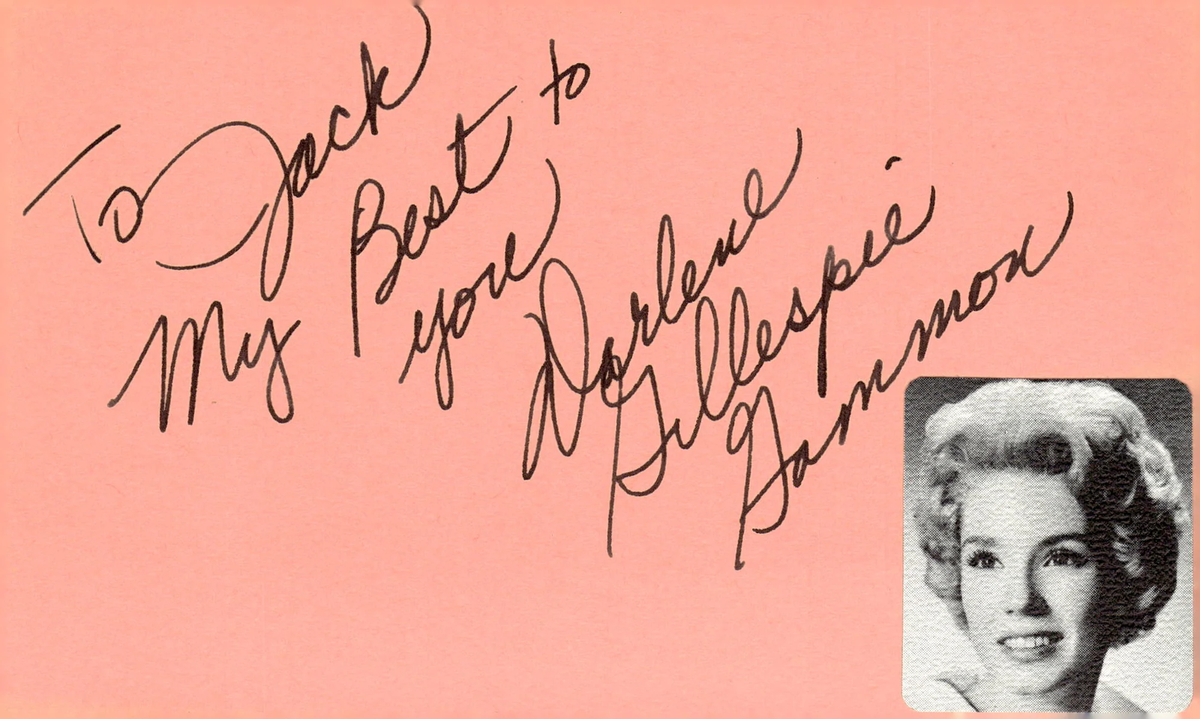 To Jack
My Best to
you
Darlene
Gillespie
Gammon